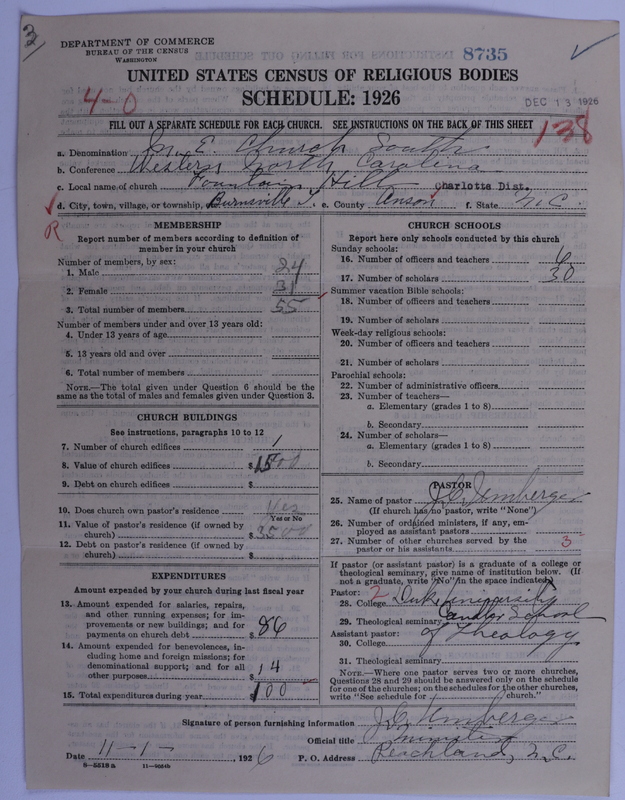 DEPARTMENT OF COMMERCE
BUREAU OF THE CENSUS
WASHINGTON
8735
UNITED STATES CENSUS OF RELIGIOUS BODIES
SCHEDULE: 1926
4-0
DEC 13 1926
138
FILL OUT A SEPARATE SCHEDULE FOR EACH CHURCH. SEE INSTRUCTIONS ON THE BACK OF THIS SHEET
a. Denomination M. E. Church South
b. Conference Western North Carolina
c. Local name of church Fountain Hill Charlotte Dist.
d. City, town, village, or township, Burnsville T. e. County Anson f. State N.C.
R
MEMBERSHIP
Report number of members according to definition of
member in your church
Number of members, by sex:
1. Male 24
2. Female 31
3. Total number of members 55
Number of members under and over 13 years old:
4. Under 13 years of age
5. 13 years old and over
6. Total number of members
NOTE.—The total given under Question 6 should be the
same as the total of males and females given under Question 3.
CHURCH BUILDINGS
See instructions, paragraphs 10 to 12
7. Number of church edifices 1
8. Value of church edifices $1500
9. Debt on church edifices $
10. Does church own pastor's residence Yes
Yes or No
11. Value of pastor's residence (if owned by
church) $3500
12. Debt on pastor's residence (if owned by
church) $
EXPENDITURES
Amount expended by your church during last fiscal year
13. Amount expended for salaries, repairs,
and other running expenses; for im-
provements or new buildings; and for
payments on church debt $86
14. Amount expended for benevolences, in-
cluding home and foreign missions; for
denominational support; and for all
other purposes $14
15. Total expenditures during year $100
CHURCH SCHOOLS
Report here only schools conducted by this church
Sunday schools:
16. Number of officers and teachers 6
17. Number of scholars 30
Summer vacation Bible schools:
18. Number of officers and teachers
19. Number of scholars
Week-day religious schools:
20. Number of officers and teachers
21. Number of scholars
Parochial schools:
22. Number of administrative officers
23. Number of teachers—
a. Elementary (grades 1 to 8)
b. Secondary
24. Number of scholars—
a. Elementary (grades 1 to 8)
b. Secondary
PASTOR
25. Name of pastor J. C. Umberger
(If church has no pastor, write "None")
26. Number of ordained ministers, if any, em-
ployed as assistant pastors
27. Number of other churches served by the
pastor or his assistants 3
If pastor (or assistant pastor) is a graduate of a college or
theological seminary, give name of institution below. (If
not a graduate, write "No" in the space indicated)
Pastor: 2
28. College Duke University
29. Theological seminary Candler School
Assistant pastor: of Theology
30. College
31. Theological seminary
NOTE.—Where one pastor serves two or more churches,
Questions 28 and 29 should be answered only on the schedule
for one of the churches; on the schedules for the other churches,
write "See schedule for church."
Signature of person furnishing information J. C. Umberger
Official title Minister
Date 11-1-, 1926 P. O. Address Peachland, N.C.
8-5519a 11-9064b